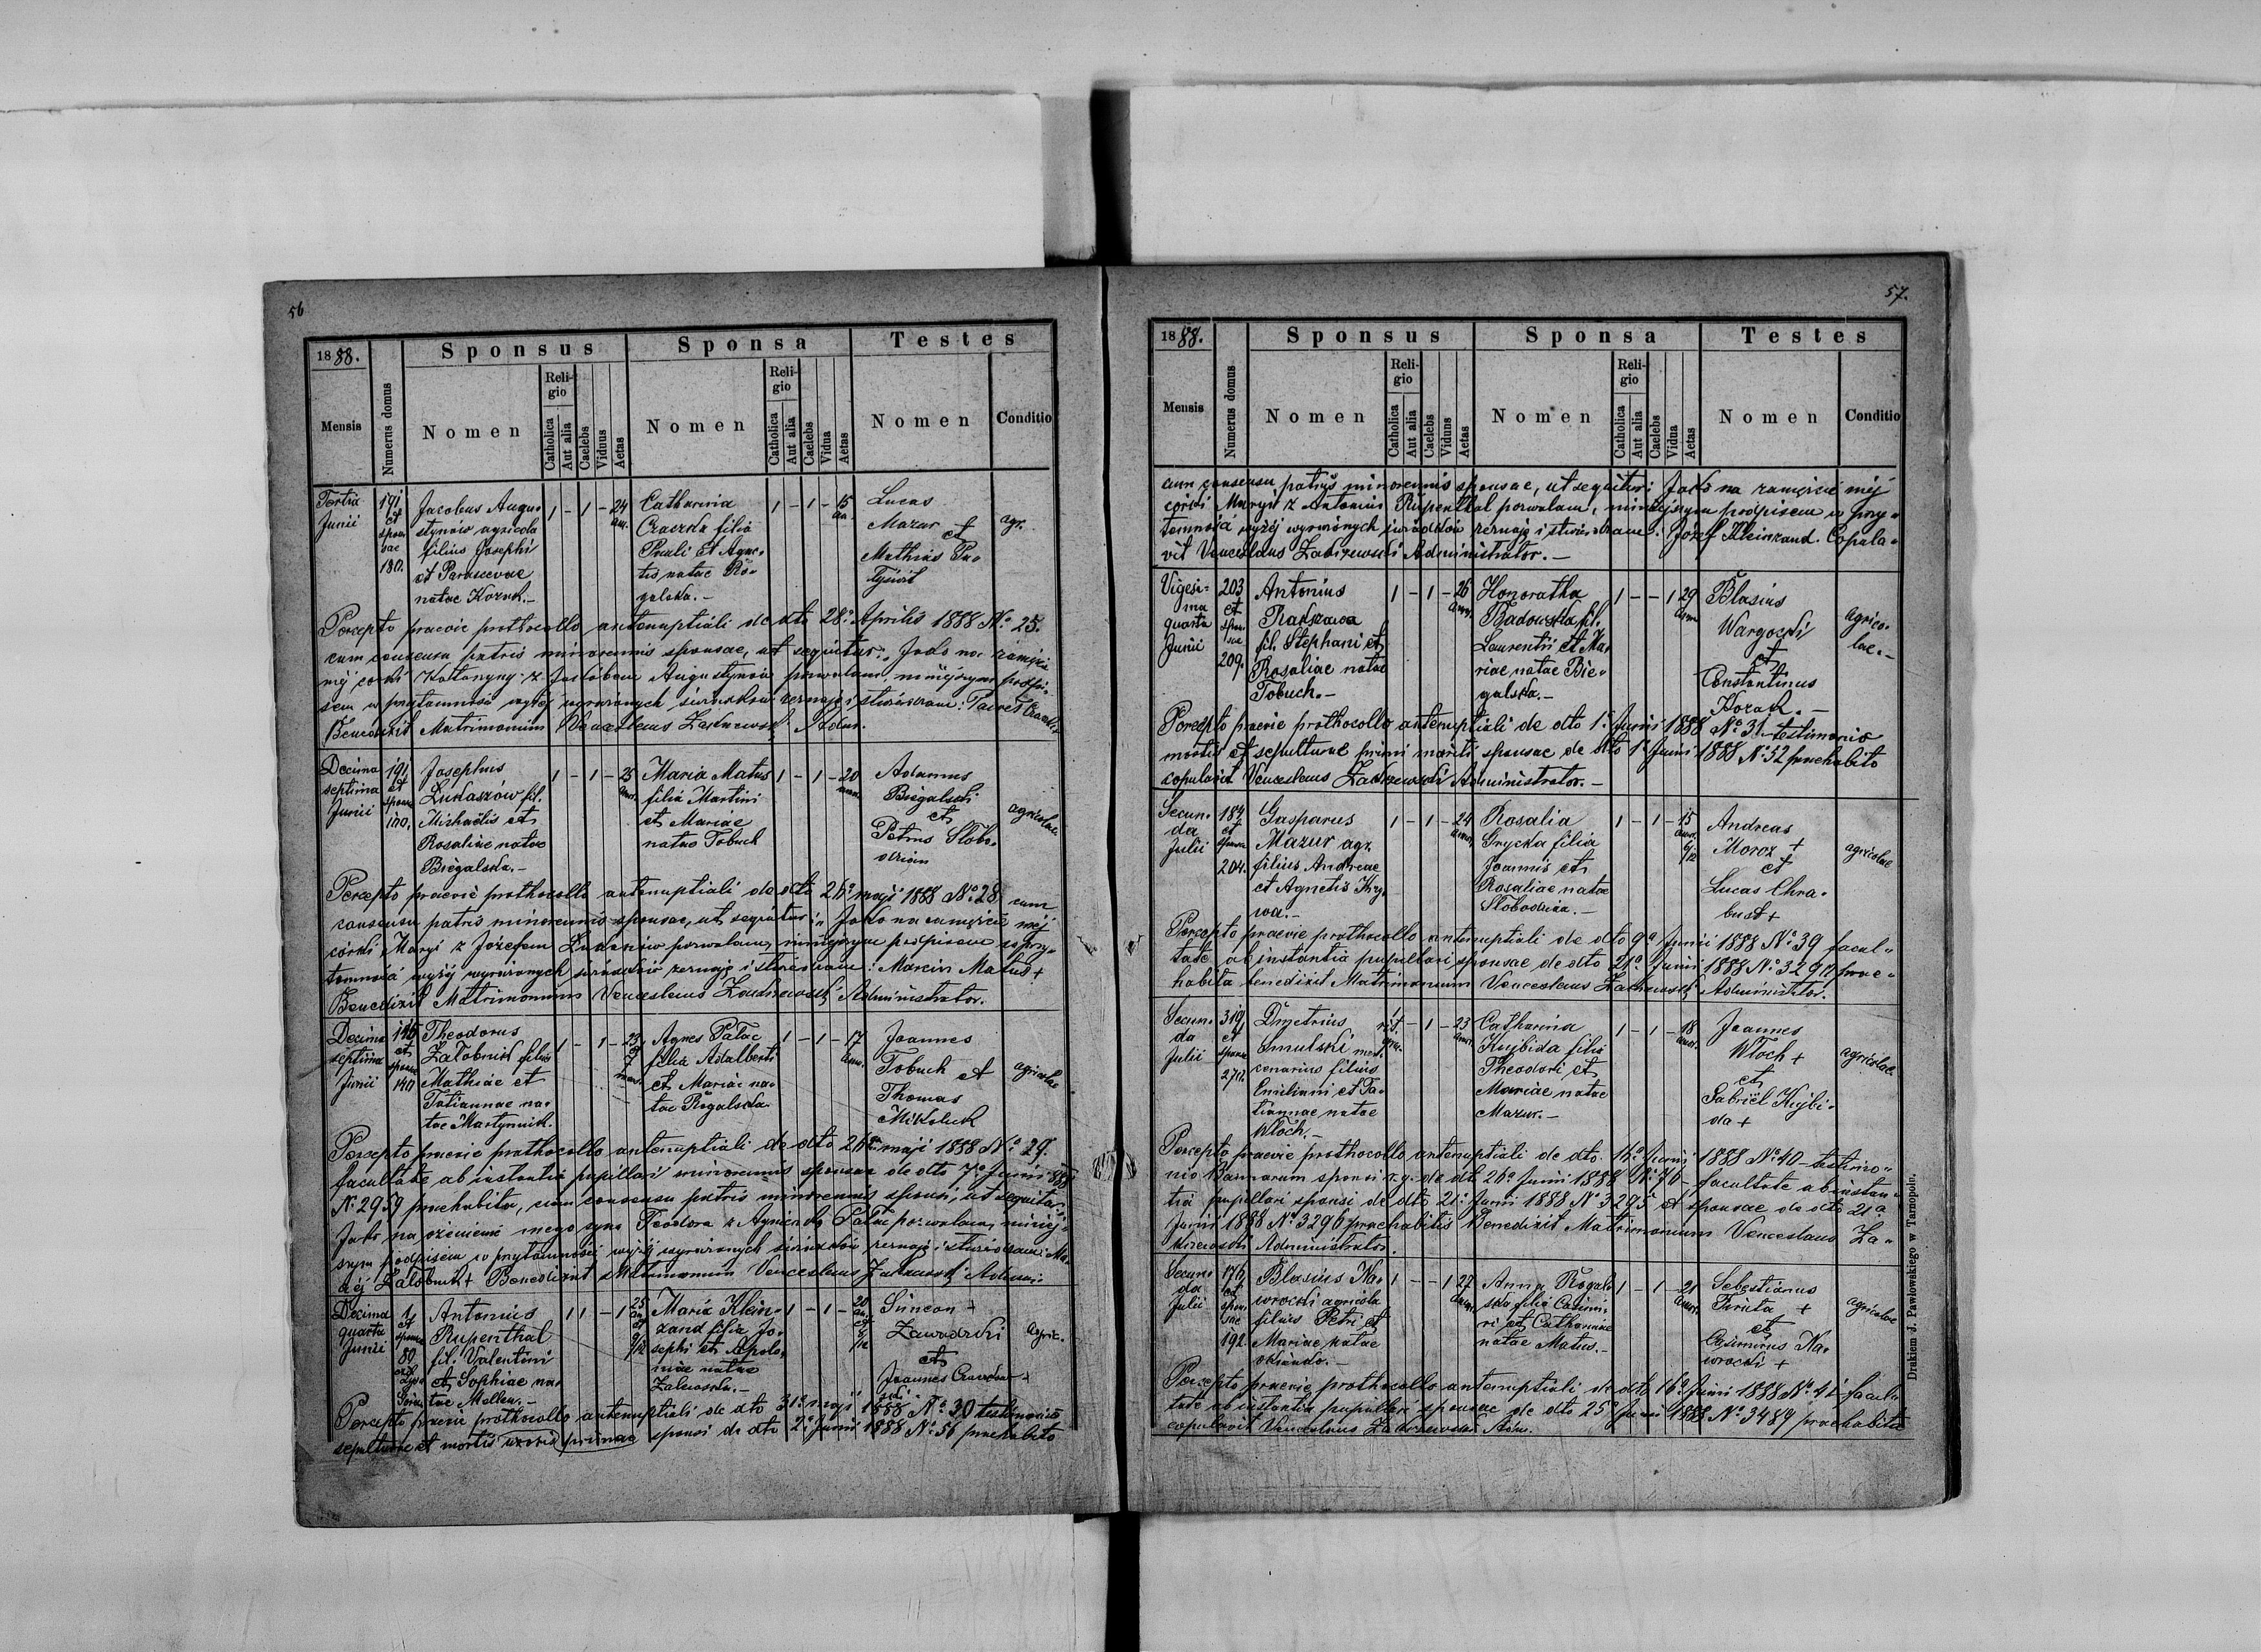 56
1888.
Sponsus
Sponsa
Testes
Mensis
Numerus domus
Nomen
Religio
Catholica
Aut alia
Caelebs
Viduus
Aetas
Nomen
Religio
Catholica
Aut alia
Caelebs
Vidua
Aetas
Nomen
Conditio
Tertia
Junii
191
et
spon
sae
130.
Jacobus Augu=
stynów agricola
filius Josephi
et Parascevae
natae Kozak.—
1 – 1 – 24
an.
Catharina
Czaczka filia
Pauli et Agne=
tis natae Ro=
galska.—
1 – 1 – 15
an.
Lucas
Mazur et
Mathias
agr.
Percepto praevie prothocollo antenuptiali de dto 28o Aprilis 1888 No 25.
cum consensu patris minorennis sponsae, ut sequitur: Jako na zamęście
méj córki Katarzyny z Jakóbem Augustynów pozwalam, niniejszym podpi=
sem w przytomności wyżéj wyrażonych świadków zeznaję i stwierdzam: Paweł Czaczka
Benedixit Matrimonium Venceslaus Zakrzewski Adm.
Decima
septima
Junii
191
et
sponsae
110.
Josephus
Lukaszów fil.
Michaëlis et
Rosaliae natae
Biegalska.—
1 – 1 – 25
ann.
Maria Matus
filia Martini
et Mariae
natae Tobuch
1 – 1 – 20
ann.
Adamus
Biegalski
et
Petrus Słobo=
dzian
agricolae
Percepto praevie prothocollo antenuptiali de dto 26o maji 1888 No 28 cum
consensu patris minorennis sponsae, ut sequitur: Jako na zamęście méj
córki Maryi z Józefem Lukaszów pozwalam, niniejszym podpisem w przy=
tomności wyżéj wyrażonych świadków zeznaję i stwierdzam: Marcin Matus +
Benedixit Matrimonium Venceslaus Zakrzewski Administrator.
Decima
septima
Junii
146
et
sponsae
140
Theodorus
Załobnik filius
Mathiae et
Tatiannae na=
tae Martyniuk.
1 – 1 – 23
Agnes Pałac
filia Adalberti
et Mariae na=
tae Rogalska
1 – 1 – 17
ann.
Joannes
Tobuch et
Thomas
Mikoluk
agricolae
Percepto praevie prothocollo antenuptiali de dto 26o maji 1888 No 29.
facultate ab instantia pupillari minorennis sponsae de dto 7o Junii 888
No 2959 praehabita, cum consensu patris minorennis sponsi, ut sequitur:
Jako na ożenienie mego syna Teodora z Agnieszką Pałac pozwalam, niniej=
szym podpisem w przytomności wyżéj wyrażonych świadków zeznaję i stwierdzam: Ma=
céj Załobnik + Benedixit Matrimonium Venceslaus Zakrzewski Admin.
Decima
quarta
Junii
1
et
sponsae
80
Antonius
Rupenthal
fil. Valentini
et Sophiae na=
tae Mellen.—
1 1 – 1 25
Maria Klein=
zand filia Jo=
sephi et Apolo=
niae natae
Zaleoska.—
1 – 1 – 20
Simeon +
Zawadzki
et
Joannes
agric.
Percepto praevie prothocollo antenuptiali de dto 31o maji 1888 No 30 testimonio
sepulturae et mortis uxoris primae sponsi de dto 2o Junii 1888 No 56 praehabito
57.
1888.
Sponsus
Sponsa
Testes
Mensis
Numerus domus
Nomen
Religio
Catholica
Aut alia
Caelebs
Viduus
Aetas
Nomen
Religio
Catholica
Aut alia
Caelebs
Vidua
Aetas
Nomen
Conditio
cum consensu patris minorennis sponsae, ut sequitur: Jako na zamęście méj
córki Maryi z Antonim Rupenthal pozwalam, niniejszym podpisem w przy=
tomności wyżéj wyrażonych świadków zeznaję i stwierdzam: Józef Kleinzand. Copula=
vit Venceslaus Zakrzewski Administrator.—
Vigesi=
ma
quarta
Junii
203
et
spon=
sae
209.
Antonius
Rakzawa
fil. Stephani et
Rosaliae natae
Tobuch.—
1 – 1 – 26
ann.
Honoratha
Badowska fil.
Laurentii et Ma=
riae natae Bie=
galska.—
1 – – 1 29
ann.
Blasius
Wargocki
et
Constantinus
Kozak.—
agrico=
lae.—
Percepto praevie prothocollo antenuptiali de dto 1o Junii 1888 No 31 testimonio
mortis et sepulturae primi mariti sponsae de dto 1o Junii 1888 No 52 praehabito
copulavit Venceslaus Zakrzewski Administrator.—
Secun=
da
Julii
184
et
sponsae
204.
Gasparus
Mazur agr.
filius Andreae
et Agnetis Kry=
wa.—
1 – 1 – 24
ann.
Rosalia
Grycka filia
Joannis et
Rosaliae natae
Słobodzian.—
1 – 1 – 15
ann.
6/12
Andreas
Moroz +
et
Lucas Chra=
bust +
agricolae
Percepto praevie prothocollo antenuptiali de dto 9o Junii 1888 No 39 facul=
tate ab instantia pupillari sponsae de dto 21o Junii 1888 No 3297 prae=
habita benedixit Matrimonium Venceslaus Zakrzewski Administrator.
Secun=
da
Julii
319
et
sponsae
277.
Dmetrius
Smulski mer=
cenarius filius
Emiliani et Ta=
tiannae natae
Włoch.—
rit. gr. – 1 – 23
ann.
Catharina
Kujbida filia
Theodori et
Mariae natae
Mazur.—
1 – 1 – 18
ann.
Joannes
Włoch +
et
Gabriël Kujbi=
da +
agricolae
Percepto praevie prothocollo antenuptiali de dto. 16o Junii 1888 No 40 – testimo=
nio Bannorum sponsi r. g. de dto 26o Junii 1888 No 76 – facultate ab instan=
tia pupillari sponsi de dto 21o Junii 1888 No 3295 et sponsae de dto 21a
Junii 1888 No 3296 praehabitis Benedixit Matrimonium Venceslaus Za=
krzewski Administrator.
Secun=
da
Julii
176
et
spon=
sae
192
Blasius Na=
wrocki agricola
filius Petri et
Mariae natae
1 – – 1 27
ann.
Anna Rogal=
ska filia Casimi=
ri et Catharinae
natae Matus.—
1 – 1 – 21
ann.
Sebastianus
Furita +
et
Casimirus Na=
wrocki +
agricolae
Percepto praevie prothocollo antenuptiali de dto 16o Junii 1888 No 41 facul=
tate ab instantia pupillari sponsae de dto 25o Junii 1888 No 3489 praehabita
copulavit Venceslaus Zakrzewski Adm.
Drukiem J. Pawłowskiego w Tarnopolu.